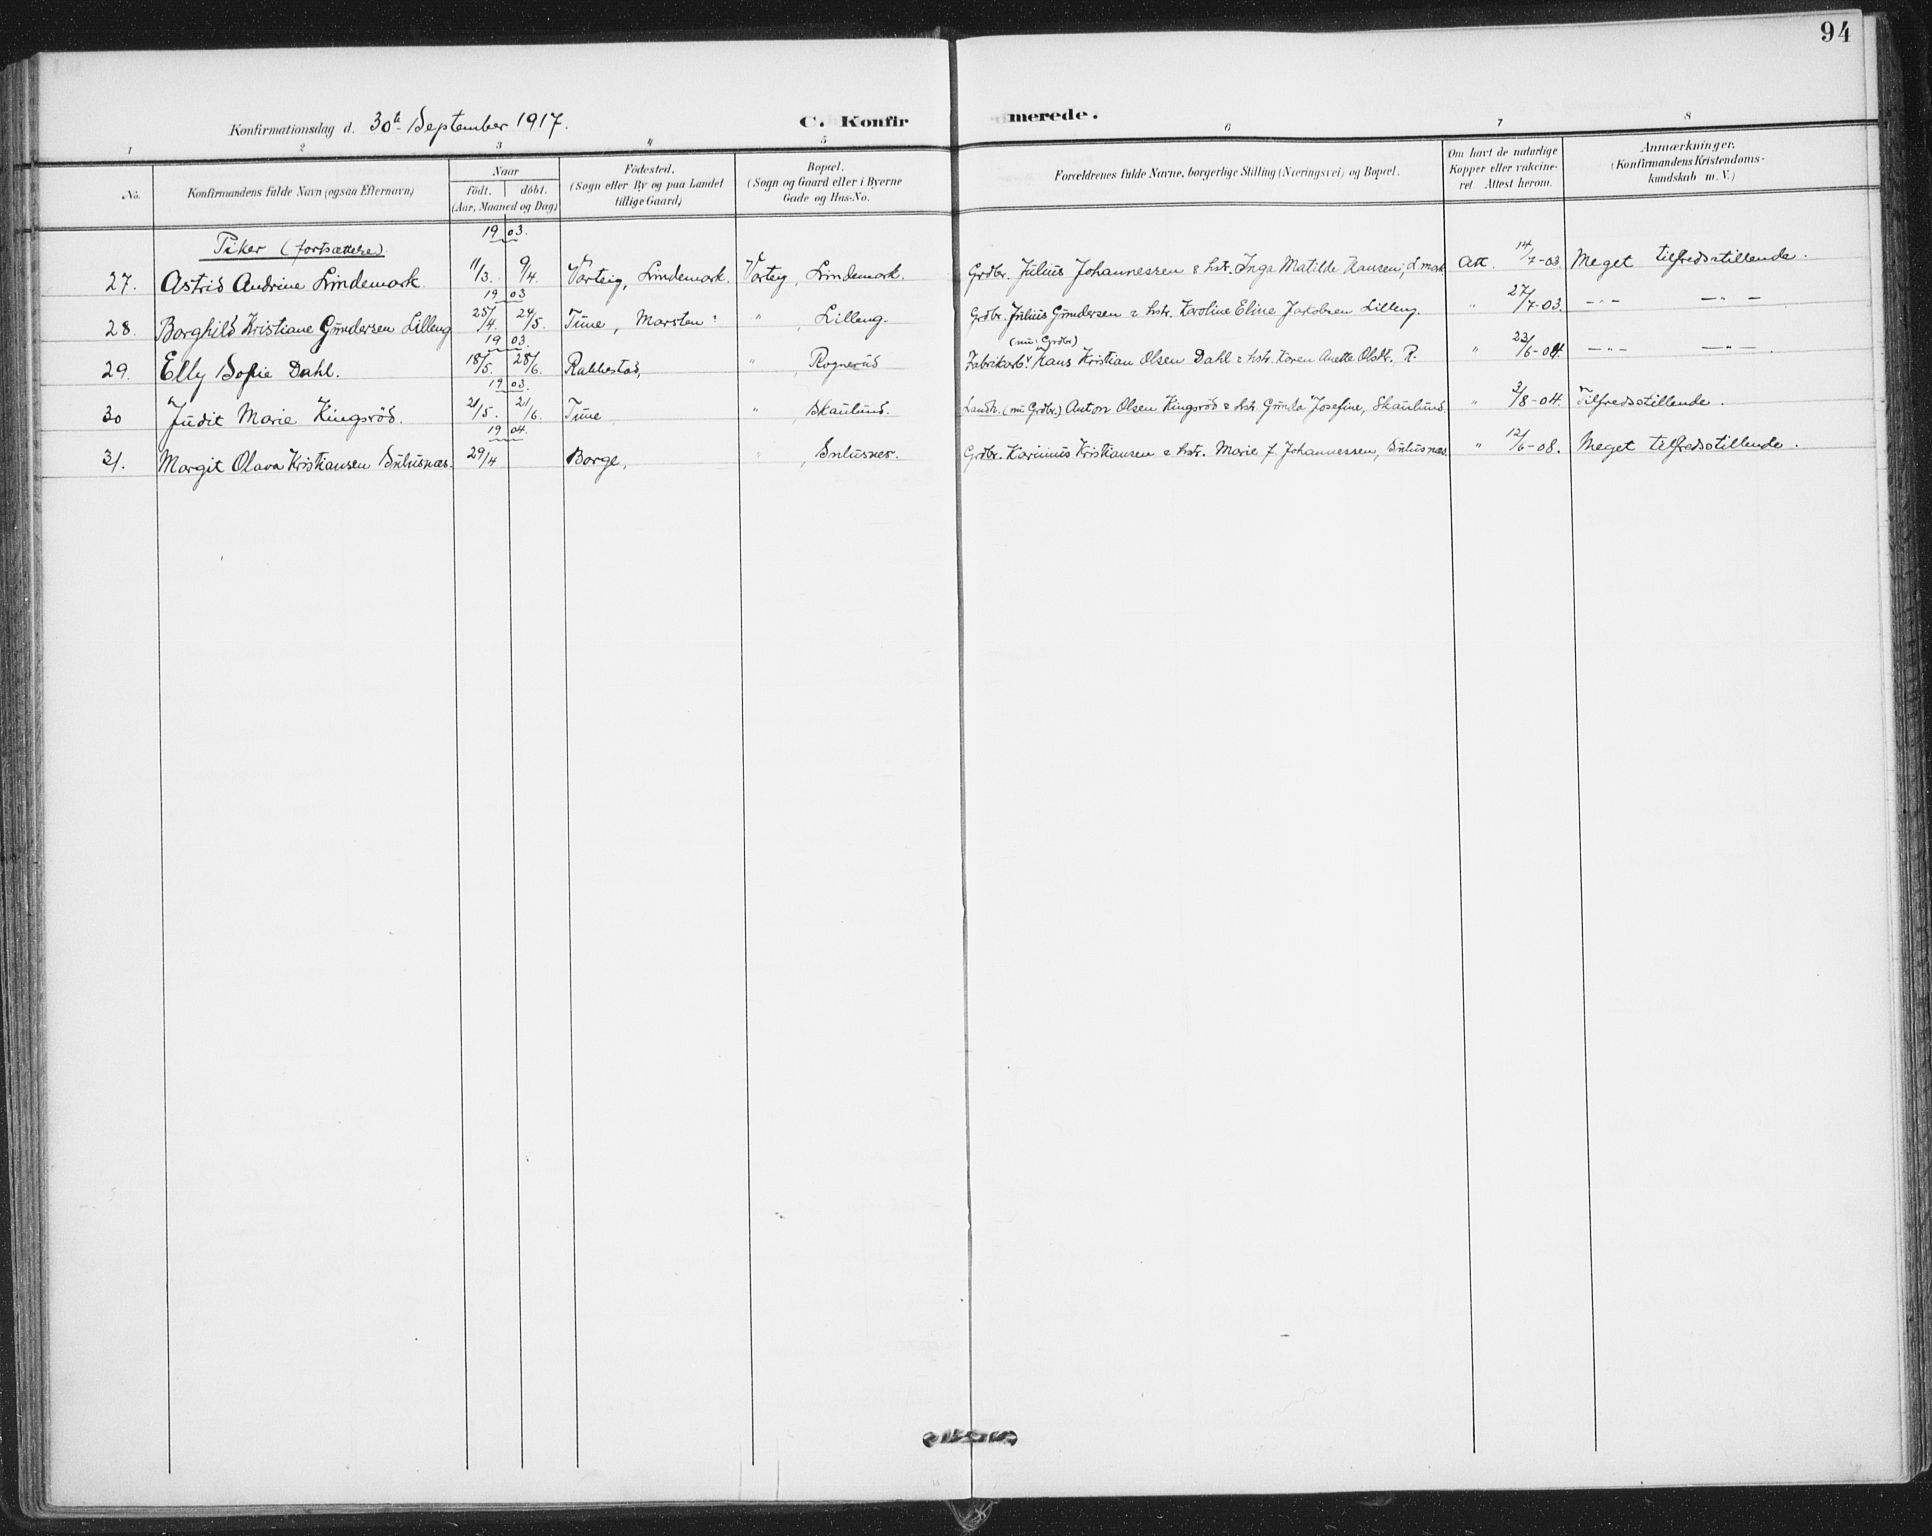 94
Konfirmationsdag d. 30te September 1917.
C. Konfirmerede.
1 2 3 4 5 6 7 8
No.
Konfirmandens fulde Navn (ogsaa Efternavn)
Naar
födt. döbt.
(Aar, Maaned og Dag)
Födested.
(Sogn eller By og paa Landet
tillige Gaard)
Bopæl.
(Sogn og Gaard eller i Byerne
Gade og Hus-No.
Forældrenes fulde Navne, borgerlige Stilling (Næringsvei) og Bopæl.
Om havt de naturlige
Kopper eller vakcine-
ret Attest herom.
Anmærkninger.
(Konfirmandens Kristendoms-
kundskab m. V.)
Piker (fortsættelse)
1903.
27. Astrid Andrine Lindemark. 11/3. 9/4. Varteig, Lindemark. Varteig, Lindemark. Grdbr. Julius Johannessen & hst. Inga Matilde Hansen, L.mark Att. 14/7-03 Meget tilfredsstillende.
1903
28. Borghild Kristiane Gundersen Lilleng 25/4. 24/5. Tune, Marsten: " , Lilleng. Grdbr. Julius Gundersen & hst. Karoline Eline Jakobsen Lilleng. " 27/7-03. —"— —"—
1903.
29. Elly Sofie Dahl. 18/5. 28/6. Rakkestad, " , Rognerud (nu: Grdbr) Fabrikarb. Hans Kristian Olsen Dahl & hst. Karen Anette Olsdt. R. " 23/6-04. —"— —"— .
1903.
30 Judit Marie Kingsrød. 21/5. 21/6. Tune " Skaulund. Landh. (nu Grdbr.) Anton Olsen Kingsrød & hst. Gunda Josefine, Skaulund. " 3/8-04. Tilfredsstillende.
1904.
31. Margit Olava Kristiansen Sulusnæs. 29/4 Borge, " , Sulusnes. Grdbr. Karinius Kristiansen & hst. Marie f. Johannessen, Sulusnæs. " 12/6-08. Meget tilfredsstillende.